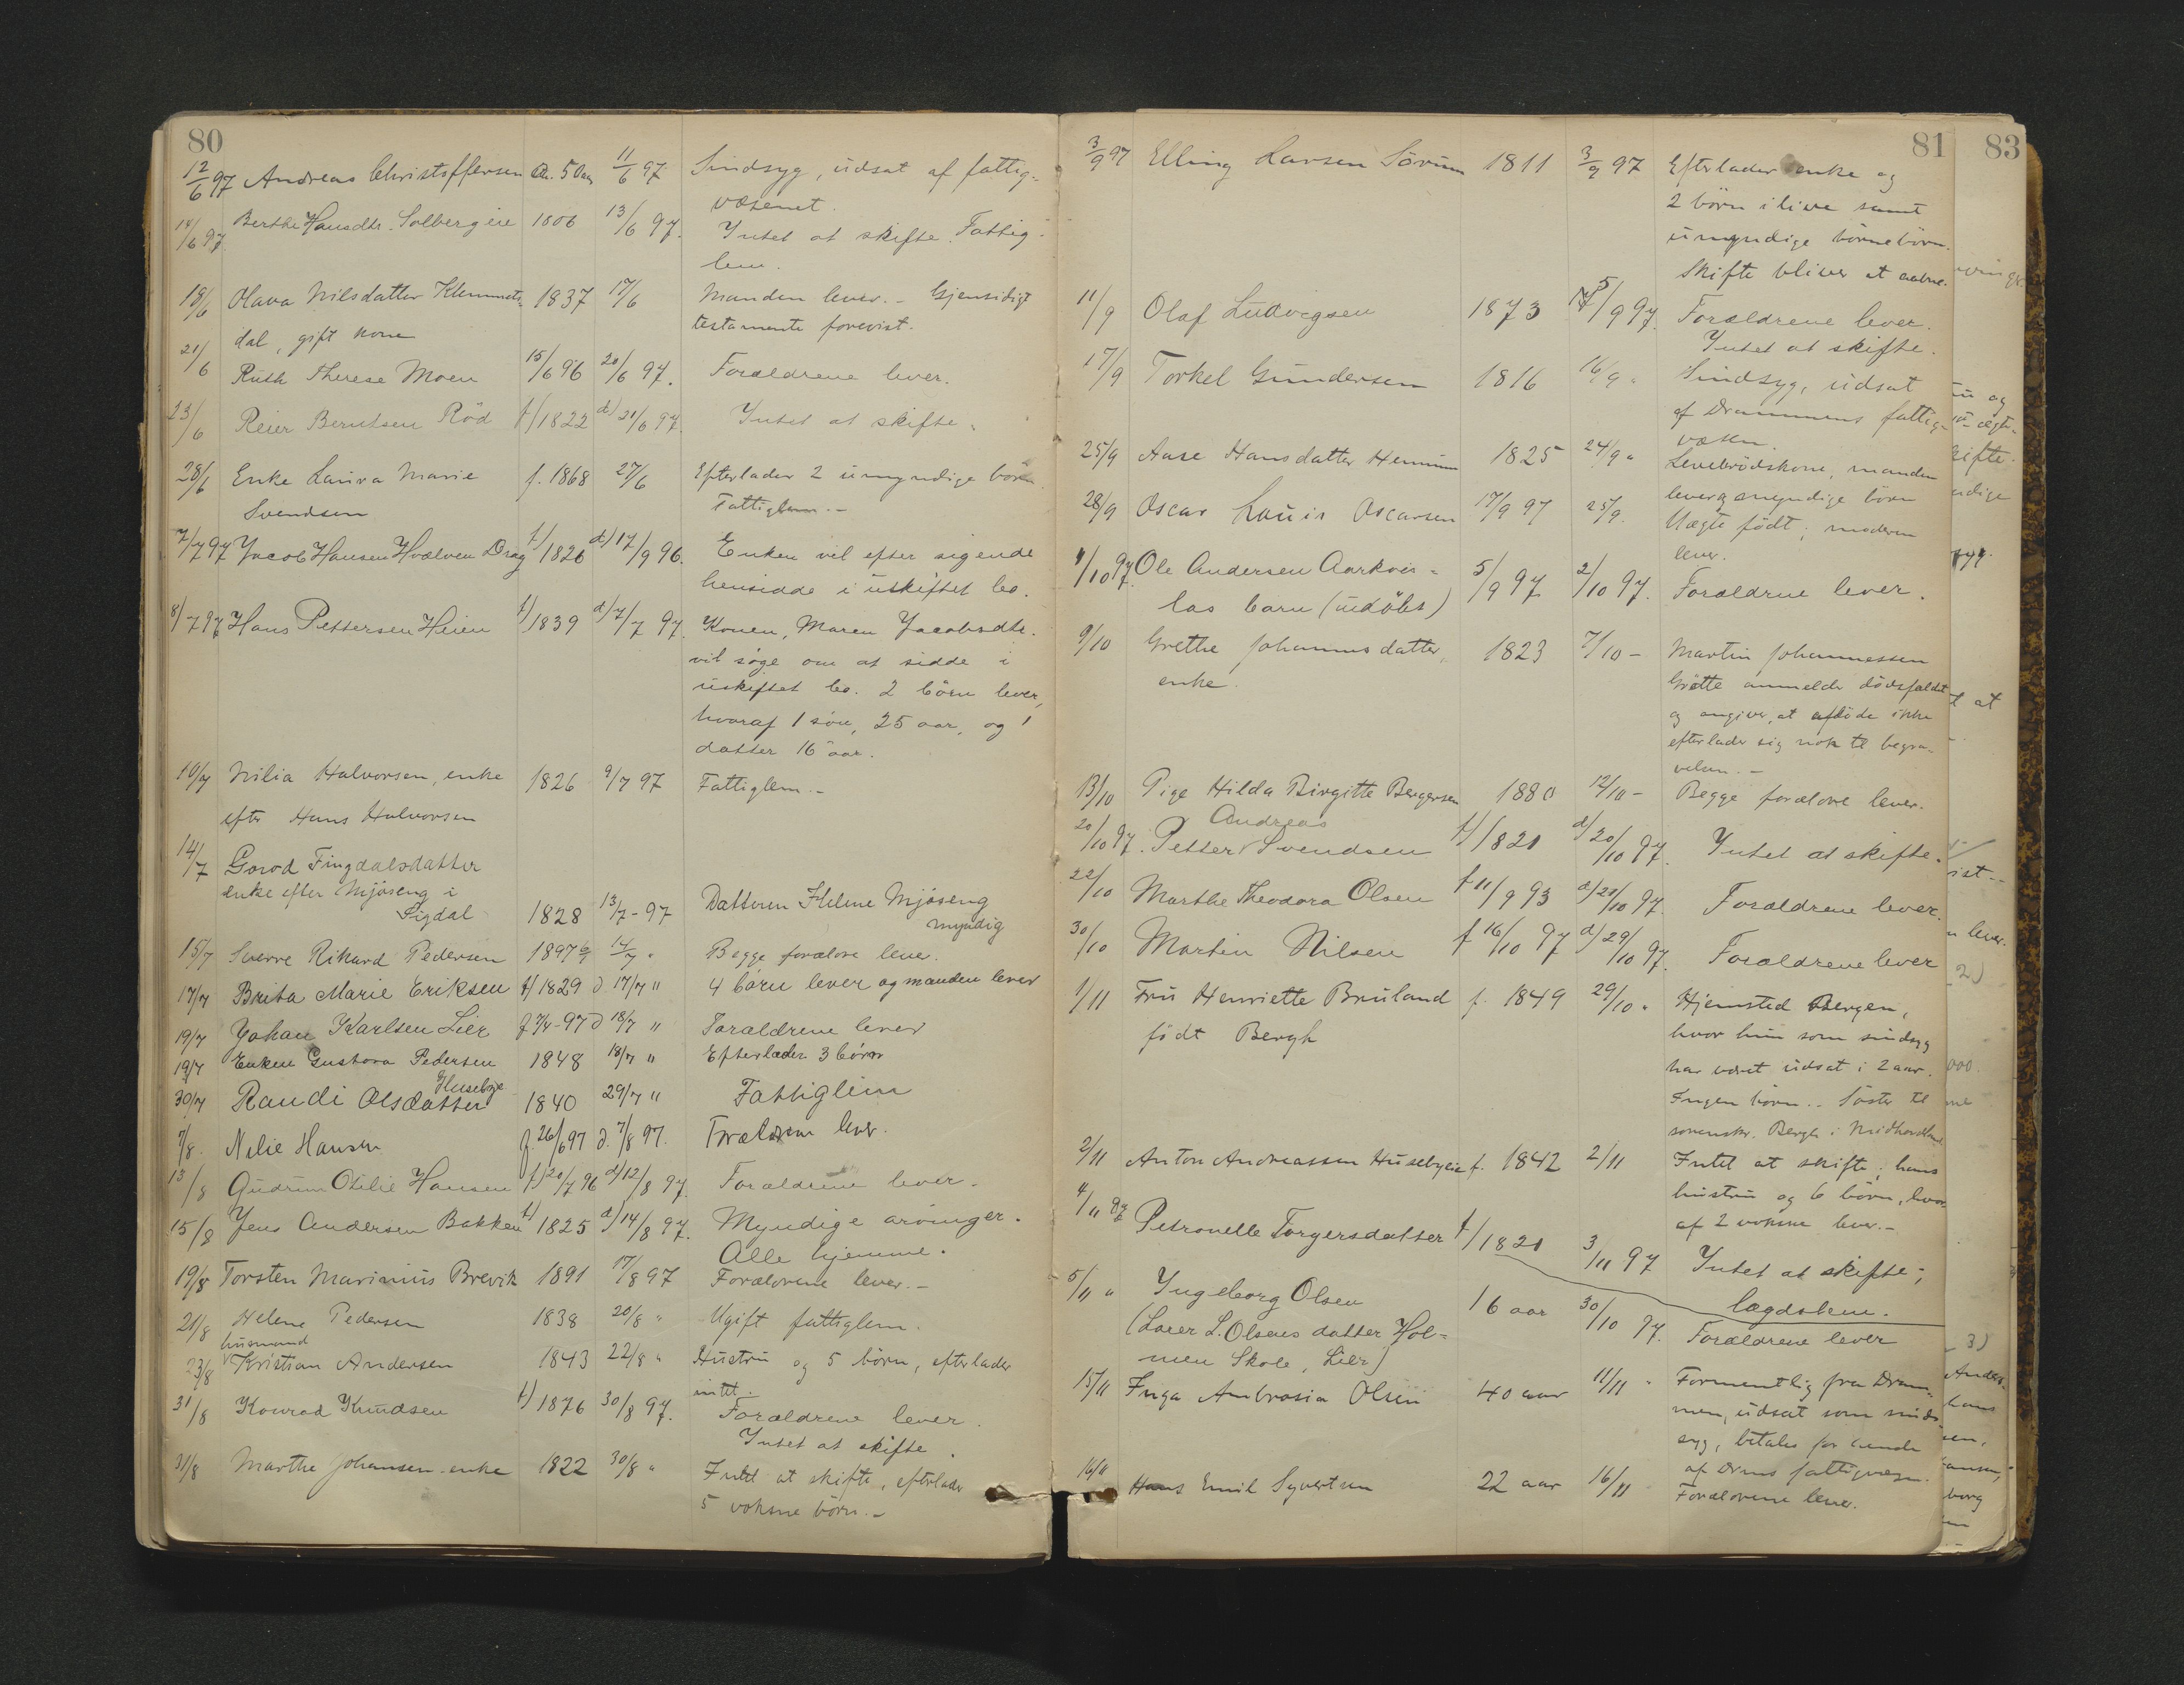 80
12/6 97 Andreas Christoffersen Ca. 50 aar 11/6 97 Sindsyg, udsat af fattig-
væsenet.
14/6 97. Berthe Hansdtr. Solbergeie 1806 13/6 97. Intet at skifte. Fattig-
lem.
18/6 Olava Nilsdatter Klemmets- 1837 17/6 Manden lever. - Gjensidigt
dal, gift kone testamente forevist.
21/6 Ruth Therese Moen 15/6 96 20/6 97. Forældrene lever.
23/6 Reier Berntsen Röd f/ 1822 d/ 21/6 97. Intet at skifte.
28/6 Enke Laura Marie f. 1868 27/6 Efterlader 2 umyndige börn
Svendsen Fattiglem. -
7/7 97 Jacob Hansen Hvalven Drag f/ 1826 d/ 17/9 96. Enken vil efter sigende
hensidde i uskiftet bo.
8/7 97 Hans Pettersen Heien f/ 1839 d/ 7/7 97. Konen, Maren Jacobsdtr.
vil söge om at sidde i
uskiftet bo. 2 börn lever,
hvoraf 1 sön, 25 aar, og 1
datter 16 aar.
10/7 Nilia Halvorsen, enke 1826 9/7 97 Fattiglem. -
efter Hans Halvorsen
14/7 Gorod Fingdalsdatter
enke efter Mjöseng i
Sigdal 1828 13/7 - 97 Datteren Helene Mjöseng
myndig
15/7 Sverre Rikard Pedersen 1897 14/7 " Begge forældre lever.
17/7 Brita Marie Eriksen f/ 1829 d 17/7 " 4 börn lever og manden lever
19/7 Johan Karlsen Lier f 7/7 - 97 d 18/7 " Forældrene lever
19/7 Enken Gustava Pedersen 1848 18/7 " Efterlader 3 börn
Husebye
30/7 Randi Olsdatter 1840 29/7 " Fattiglem
7/8. Nilie Hansen f. 26/6 97 d. 7/8 97. Forældrene lever.
13/8 Gudrun Otilie Hansen f/ 20/7 96 d/ 12/8 97. Forældrene lever.
15/8 Jens Andersen Bakken f/ 1825 d/ 14/8 97. Myndige arvinger.
Alle hjemme.
19/8 Torsten Marinius Brevik 1891 17/8 97 Forældrene lever. -
21/8 Helene Pedersen 1838 20/8 " Ugift fattiglem.
husmand
23/8 Kristian Andersen 1843 22/8 " Hustru og 5 börn, efterlader
intet.
31/8 Konrad Knudsen f/ 1876 30/8 97. Forældrene lever.
Intet at skifte.
31/8 Marthe Johansen enke 1822 30/8 " Intet at skifte, efterlader
5 voksne börn. -
81
3/9 97 Elling Larsen Sörum 1811 3/9 97 Efterlader enke og
2 börn ilive samt
umyndige börnebörn.
Skifte bliver at aabne.
11/9 Olaf Ludvigsen 1873 5/9 97. Forældrene lever.
Intet at skifte.
17/9 Torkel Gundersen 1816 16/9 " Sindsyg, udsat
af Drammens fattig-
væsen.
25/9 Aase Hansdatter Hennum 1825 24/9 " Levebrödskone, manden
lever og myndige börn
28/9 Oscar Louis Oscarsen 17/9 97 25/9. Uægte födt; moderen
lever.
4/10 97. Ole Andersen Aarkvis- 5/9 97 2/10 97. Forældrene lever.
las barn (udöbt)
9/10 Grethe Johannesdatter, 1823 7/10 - Martin Johannessen
enke. Grötte anmelder dödsfaldet
og angiver, at afdöde ikke
efterlader sig nok til begra-
velsen. -
13/10 Pige Hilda Birgitte Bergersen 1880 12/10 - Begge forældre lever.
Andreas
20/10 97. Petter Svendsen f/ 1821 d/ 20/10 97. Intet at skifte.
22/10 Marthe Theodora Olsen f 11/9 93 d/ 21/10 97. Forældrene lever.
30/10 Martin Nilsen f 16/10 97 d/ 29/10 97. Forældrene lever
1/11 Fru Henriette Bruland f. 1849 29/10 " Hjemsted Bergen,
födt Bergh hvor hun som sindsyg
har været udsat i 2 aar.
Ingen börn. - Söster til
sorenskr. Bergh i Midhordland
2/11 Anton Andreassen Husebyeie f. 1842 2/11 Intet at skifte; hans
hustru og 6 börn, hvor-
af 2 voksne lever. -
4/11 97 Petronelle Torgersdatter f/ 1821 3/11 97 Intet at skifte;
lægdslem.
5/11 " Ingeborg Olsen 16 aar 30/10 97. Forældrene lever
(Lærer L. Olsens datter Hol-
men Skole, Lier)
15/11 Inga Ambrosia Olsen 40 aar 11/11 " Formentlig fra Dram-
men, udsat som sinds-
syg, betales for hende
af Drms fattigvæsn.
16/11 Hans Emil Syvertsen 22 aar 16/11 Forældrene lever.
83